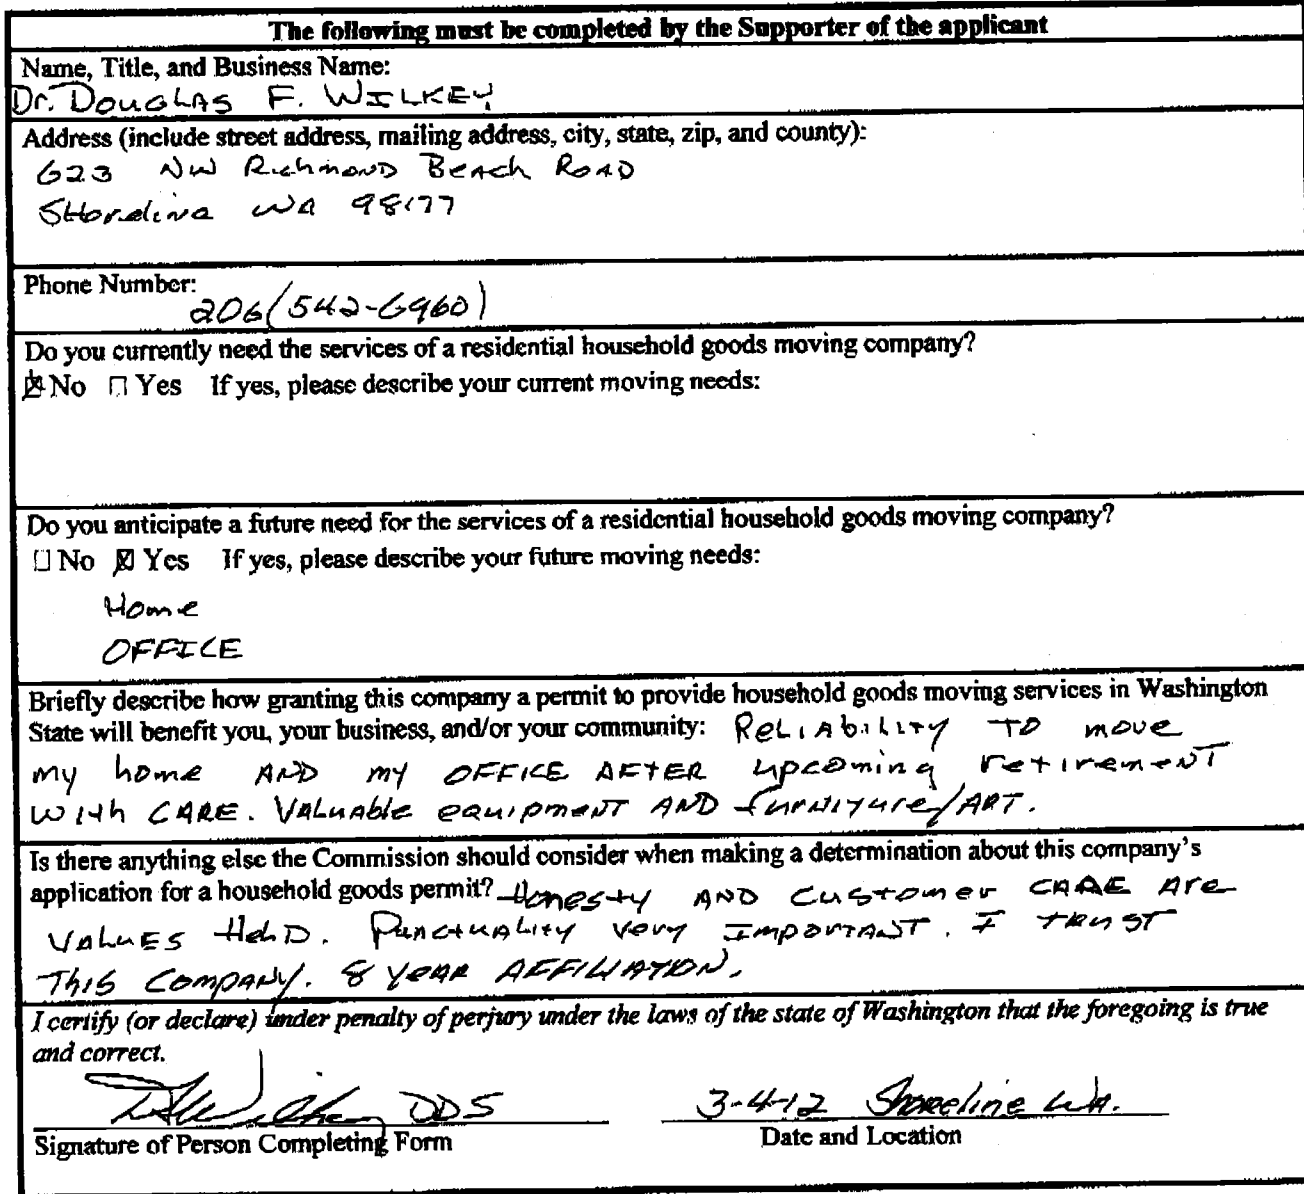 The following must be completed by the Supporter of the applicant
Name, Title, and Business Name:
Dr. DOUGLAS F. WILKEY
Address (include street address, mailing address, city, state, zip, and county):
623 NW RichmonD BEAch ROAD
SHoreline WA 98177
Phone Number:
206(542-6960)
Do you currently need the services of a residential household goods moving company?
☒ No ☐ Yes If yes, please describe your current moving needs:
Do you anticipate a future need for the services of a residential household goods moving company?
☐ No ☒ Yes If yes, please describe your future moving needs:
Home
OFFICE
Briefly describe how granting this company a permit to provide household goods moving services in Washington
State will benefit you, your business, and/or your community: ReLiAbiLity TO move
my home AND my OFFICE AFTER upcoming retirement
With CARE. VALuAble equipment AND furniture/ART.
Is there anything else the Commission should consider when making a determination about this company's
application for a household goods permit? Honesty AND Customer CARE Are
VALUES HelD. PunctuALity very IMPORTANT. I TRUST
This Company. 8 YEAR AFFILIATION.
I certify (or declare) under penalty of perjury under the laws of the state of Washington that the foregoing is true
and correct.
DDS 3-4-12 Shoreline WA.
Signature of Person Completing Form Date and Location